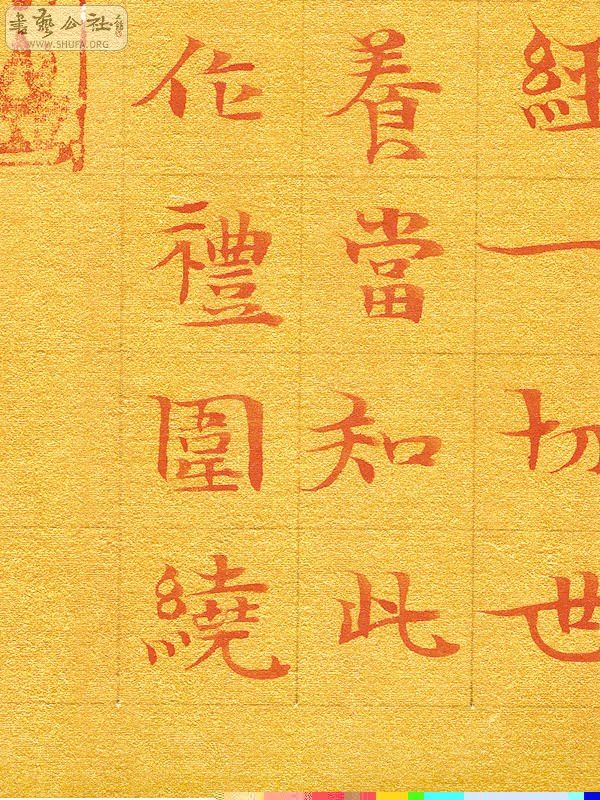 經一切世
養當知此
作禮圍繞
書藝公社
WWW.SHUFA.ORG